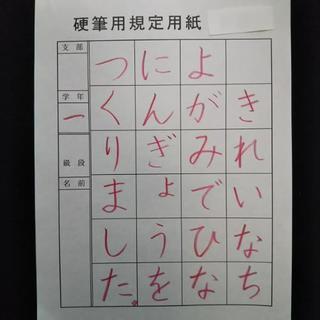 硬筆用規定用紙
きれいなち
よがみでひな
にんぎょうを
つくりました。
支部
学年
一
級段
名前